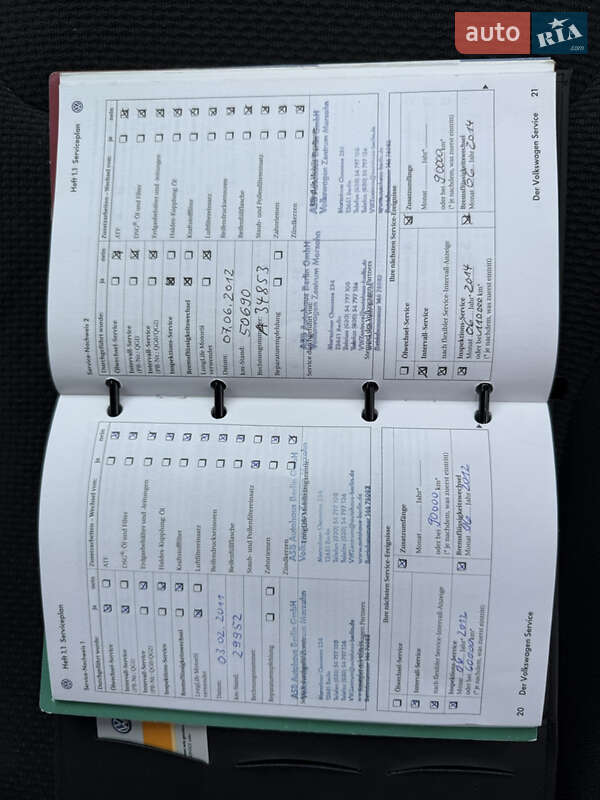 auto
RIA
.com
Heft 1.1 Serviceplan
Service-Nachweis 1
Durchgeführt wurde:
ja
nein
Ölwechsel-Service
Intervall-Service
(PR-Nr.: QG1)
Intervall-Service
(PR-Nr.: QG0/QG2)
Inspektions-Service
Bremsflüssigkeitswechsel
LongLife-Motoröl
verwendet
Datum:
03.02.2011
km-Stand:
29952
Rechnungsnr.:
Reparaturempfehlung
Zusatzarbeiten - Wechsel von:
ja
nein
ATF
DSG®-Öl und Filter
Erdgasbehälter und -leitungen
Haldex-Kupplung: Öl
Kraftstofffilter
Luftfiltereinsatz
Reifendruckseinsoren
Reifenfüllflasche
Staub- und Pollenfiltereinsatz
Zahnriemen
Zündkerzen
ASB Autohaus Berlin GmbH
Volkswagen Zentrum Marzahn
Marzahner Chaussee 234
12681 Berlin
Telefon (030) 54 797 108
Telefax (030) 54 797 156
Ihre nächsten Service-Ereignisse
Ölwechsel-Service
Intervall-Service
nach flexibler Service-Intervall-Anzeige
Inspektions-Service
Monat 06 Jahr 2012
oder bei 60000 km*
(* je nachdem, was zuerst eintritt)
Zusatzumfänge
Monat Jahr*
oder bei 90000 km*
(* je nachdem, was zuerst eintritt)
Bremsflüssigkeitswechsel
Monat 06 Jahr 2012
20
Der Volkswagen Service
Heft 1.1 Serviceplan
Service-Nachweis 2
Durchgeführt wurde:
ja
nein
Ölwechsel-Service
Intervall-Service
(PR-Nr.: QG1)
Intervall-Service
(PR-Nr.: QG0/QG2)
Inspektions-Service
Bremsflüssigkeitswechsel
LongLife-Motoröl
verwendet
Datum:
07.06.2012
km-Stand:
50690
Rechnungsnr.:
34853
Reparaturempfehlung
Zusatzarbeiten - Wechsel von:
ja
nein
ATF
DSG®-Öl und Filter
Erdgasbehälter und -leitungen
Haldex-Kupplung: Öl
Kraftstofffilter
Luftfiltereinsatz
Reifendrucksensoren
Reifenfüllflasche
Staub- und Pollenfiltereinsatz
Zahnriemen
Zündkerzen
ASB Autohaus Berlin GmbH
Volkswagen Zentrum Marzahn
Marzahner Chaussee 234
12681 Berlin
Telefon (030) 54 797 108
Telefax (030) 54 797 156
Stempel des Volkswagen Partners
Ihre nächsten Service-Ereignisse
Ölwechsel-Service
Intervall-Service
nach flexibler Service-Intervall-Anzeige
Inspektions-Service
Monat 06 Jahr 2014
oder bei 110000 km*
(* je nachdem, was zuerst eintritt)
Zusatzumfänge
Monat Jahr*
oder bei 90000 km*
(* je nachdem, was zuerst eintritt)
Bremsflüssigkeitswechsel
Monat 06 Jahr 2014
Der Volkswagen Service
21